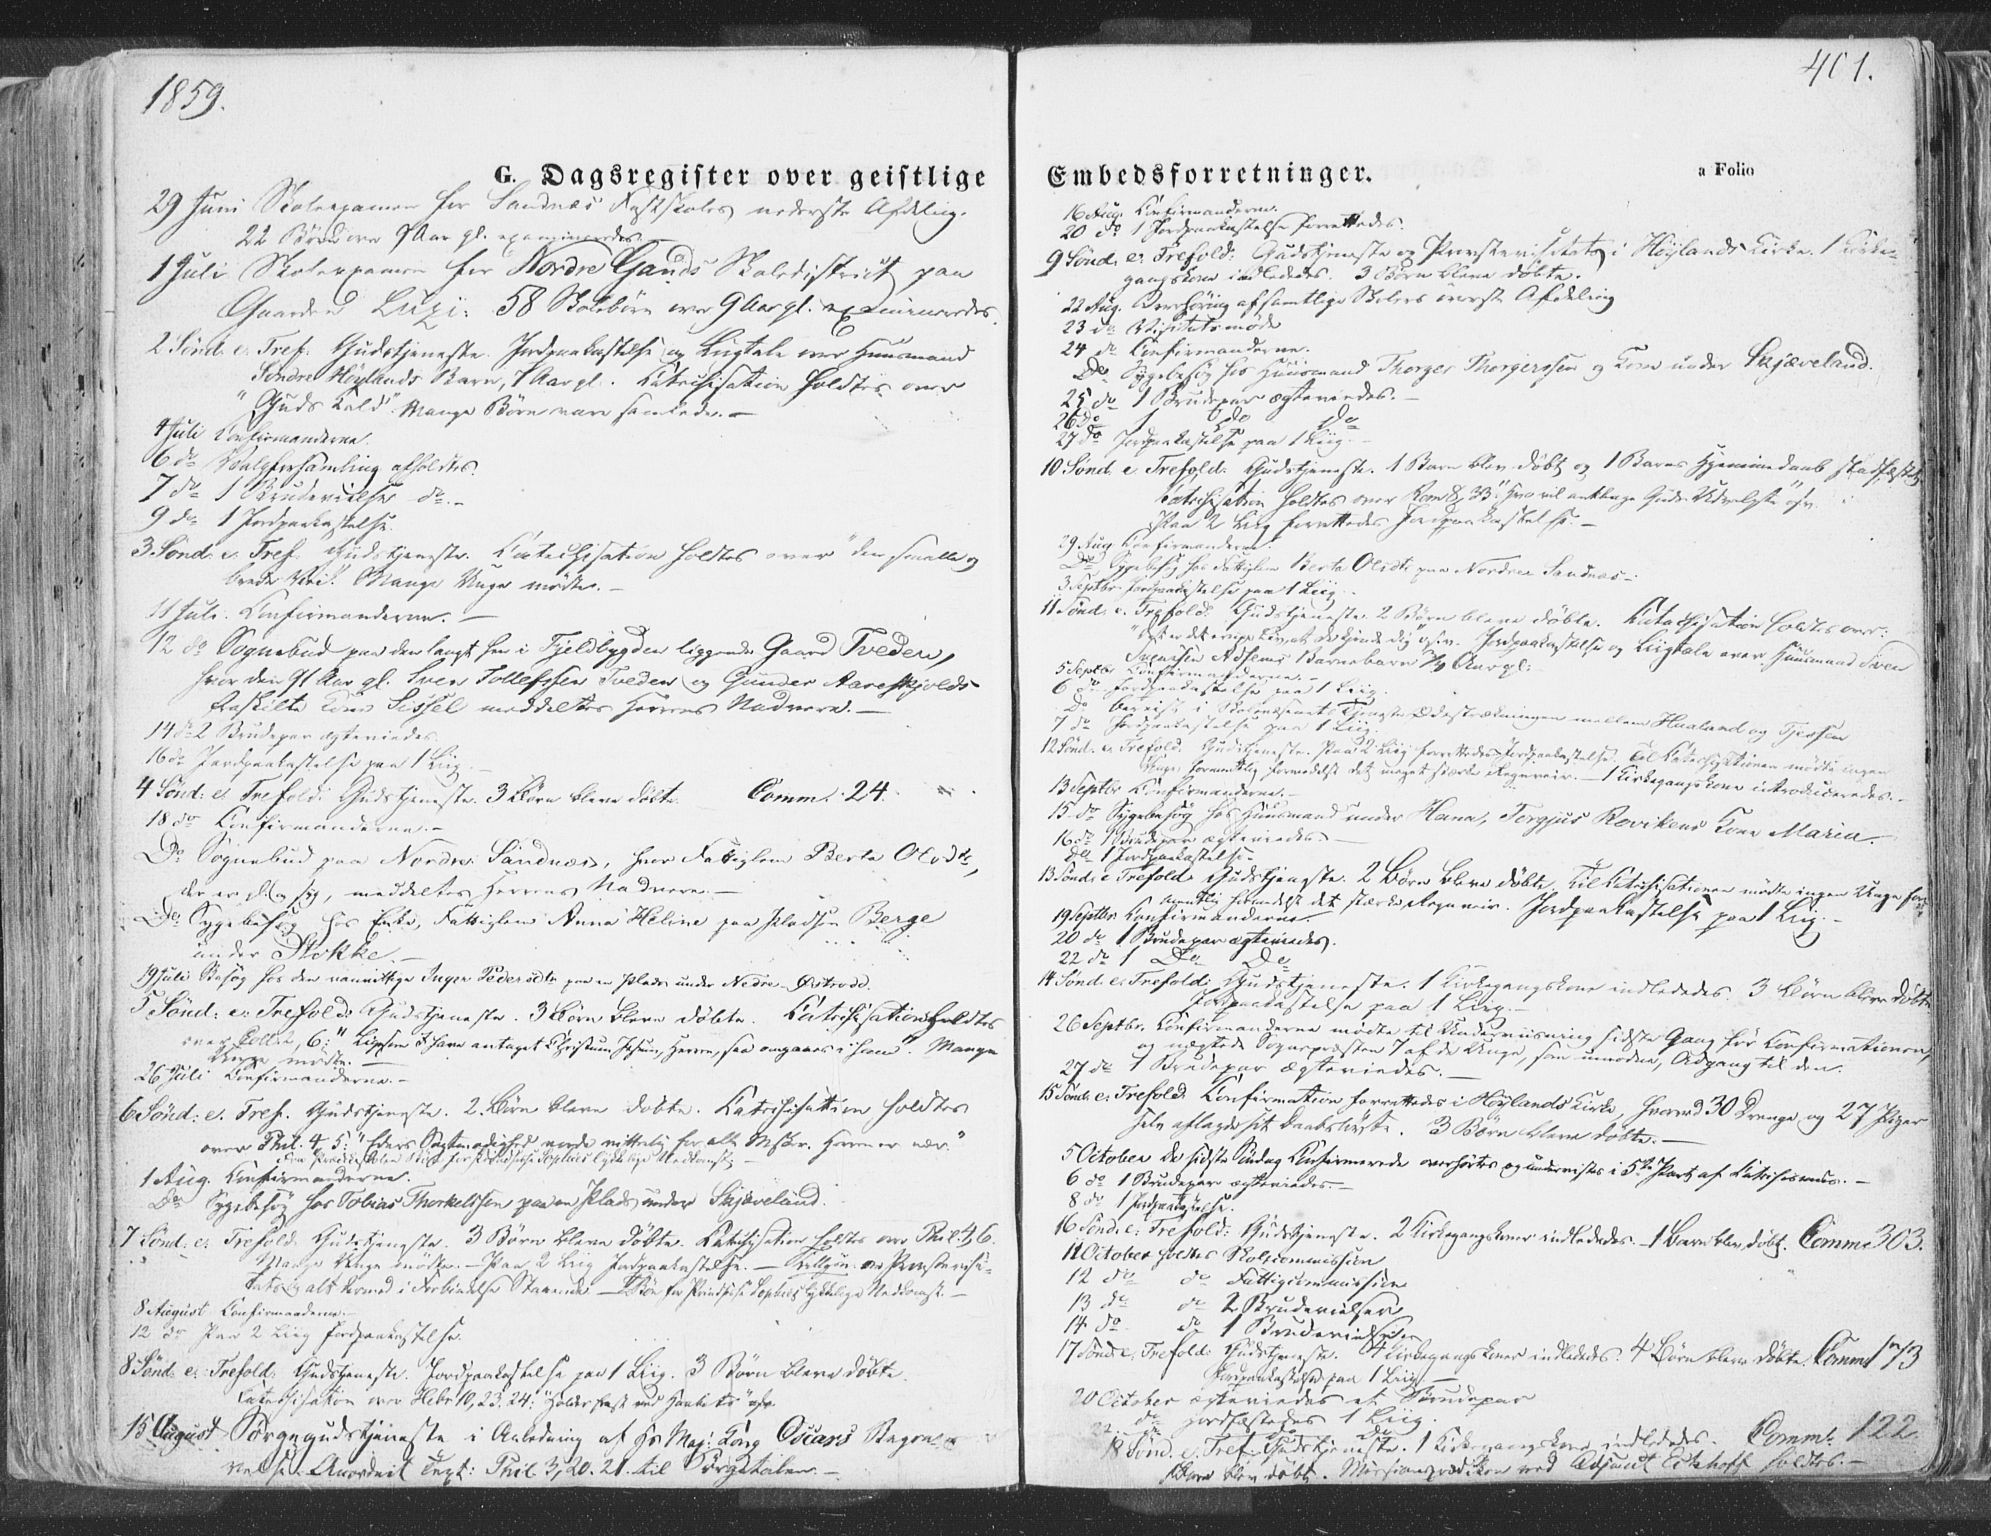 1859.
G. Dagsregister over geistlige
29 Juni Skoleexamen for Sandnæs Fastskoles nederste Afdeling.
22 Børn over 9 Aar gl. examineredes.
1 Juli Skoleexamen for Nordre Gands Skoledistrict paa
Gaarden Luzi: 58 Skolebörn over 9 Aar gl. examineredes.
2 Sönd. e. Tref. Gudstjeneste. Jordpaakastelse og Liigtale over Huusmand
Søndre Höylands Barn, Aar gl. Catechisation holdtes over
"Guds Kald". Mange Börn vare samlede. —
4 Juli Confirmanderne.
6 do Valgforsamling afholdtes.
7 do 1 Brudevielse do. —
9 do 1 Jordpaakastelse.
3 Sönd. e. Tref. Gudstjeneste. Catechisation holdtes over "den smalle og
brede Vei". Mange Unge mödte. —
11 Juli. Confirmanderne. —
12 do Sognebud paa den langt hen i Fjeldbygden liggende Gaard Tveden,
hvor den 91 Aar gl. Sven Tollefssen Tveden og Gunder Aareskjolds
fraskilte Kone Sissel meddeltes Herrens Nadvere. —
14 do 2 Brudepar ægteviedes.
16 do Jordpaakastelse paa 1 Liig. —
4 Sönd: e. Trefold: Gudstjeneste. 3 Börn bleve döbte. Comm. 24.
18 do Confirmanderne. —
Do Sognebud paa Nordre Sandnæs, hvor Fattiglem Berta Olsdtr,
der er gl. og syg, meddeltes Herrens Nadvere. —
Do Sygebesög hos Enke, Fattiglem Anna Heline paa Pladsen Berge
under Stokke. —
19 Juli Besög hos den vanvittige Inger Pedersdtr paa en Plads under Nedre
5 Sönd: e. Trefold: Gudstjeneste. 3 Börn bleve döbte. Catechisation holdtes
over Coll. 2, 6: "Ligesom I have antaget Christum Jesum, Herren, saa omgaaes i ham". Mange
Unge mödte. —
26 Juli Confirmanderne. —
6 Sönd: e. Tref. Gudstjeneste. 2 Börn bleve döbte. Catechisation holdtes
over Phil. 4, 5: "Eders Sagtmodighed vorde vitterlig for alle Msker. Herren er nær."
1 Aug. Confirmanderne.
Do Sygebesög hos Tobias Thorkelssen paa en Plads under Skjæveland.
7 Sönd: e: Trefold: Gudstjeneste. 3 Börn bleve döbte. Catechisation holdtes over Phil. 4, 6.
Mange Unge mödte. — Paa 2 Liig Jordpaakastelse. —
8 August Confirmanderne. —
12 do Paa 2 Liig Jordpaakastelse.
8 Sönd. e. Trefold: Gudstjeneste. Jordpaakastelse paa 1 Liig. 3 Börn bleve döbte.
Catechisation over Hebr. 10, 23. 24: "Holder fast ved Haabets" osv.
15 August Sörgegudstjeneste i Anledning af Hs Maj: Kong Oscars Begra-
velse. Anordnet Text: Phil. 3, 20. 21. til Sörgetalen. —
401.
Embedsforretninger.
a Folio
16 Aug. Confirmanderne.
20 do 1 Jordpaakastelse forrettedes.
9 Sönd. e. Trefold: Gudstjeneste og Provstevisitats i Höylands Kirke. 1 Kirke-
gangskone indlededes. 3 Börn bleve döbte.
22 Aug. Overhöring af samtlige Skolers överste Afdeling
23 do Visitatsmöde
24 do Confirmanderne.
Do Sygebesög hos Huusmand Thorger Thorgerssen og Kone under Skjæveland.
25 do 1 Brudepar ægteviedes. —
26 do 1 do do
27 do Jordpaakastelse paa 1 Liig. —
10 Sönd e Trefold: Gudstjeneste. 1 Barn blev döbt og 1 Barns Hjemmedaab stadfæstet.
Catechisation holdtes over Rom 8, 33: "hvo vil anklage Guds Udvalgte" osv.
Paa 2 Liig forrettedes Jordpaakastelse. —
29 Aug. Confirmanderne.
Do Sygebesög hos Fattiglem Berta Olsdtr paa Nordre Sandnæs —
3 Septbr Jordpaakastelse paa 1 Liig.
11 Sönd. e. Trefold: Gudstjeneste. 2 Börn bleve döbte. Catechisation holdtes over:
"Det er det evige Liv, at de kjende dig" osv. Jordpaakastelse og Liigtale over Huusmand Sven
Barnebarn Aar gl:
5 Septbr Confirmanderne. —
6 do Jordpaakastelse paa 1 Liig.
Do Bereist i Skolevæsenets Tjeneste Odestrækningen mellem Hualand og Tjessem
7 do Jordpaakastelse paa 1 Liig.
12 Sönd. e. Trefold. Gudstjeneste. Paa 2 Liig forrettedes Jordpaakastelse. Til Catechisationen mödte ingen
Unge, formentlig formedelst det meget stærke Regnveir. — 1 Kirkegangskone introduceredes. —
13 Septbr Confirmanderne. —
15 do Sygebesög hos Huusmand under Hana, Torgjus Rovikens Kone Maria.
16 do 1 Brudepar ægteviedes. —
Do 1 Jordpaakastelse.
13 Sönd. e Trefold: Gudstjeneste. 2 Börn bleve döbte. Til Catechisationen mödte ingen Unge for-
mentlig formedelst det stærke Regnveir. Jordpaakastelse paa 1 Liig. —
19 Septbr. Confirmanderne. —
20 do 1 Brudepar ægteviedes.
22 do 1 Do Do
14 Sönd. e. Trefold: Gudstjeneste. 1 Kirkegangskone indlededes. 3 Börn bleve döbte
Jordpaakastelse paa 1 Liig. —
26 Septbr. Confirmanderne mödte til Underviisning sidste Gang för Confirmationen,
og nægtede Sognepræsten 7 af de Unge, som umodne, Adgang til den.
27 do 1 Brudepar ægteviedes. —
15 Sönd: e: Trefold. Confirmation forrettedes i Höylands Kirke, hvorved 30 Drenge og 27 Piger
selv aflagde sit Daabslöfte. 3 Börn bleve döbte. —
5 October De sidste Söndag Confirmerede overhörtes og underviistes i 5te Part af Catechismus. —
6 do 1 Brudepar ægteviedes. —
8 do 1 Jordpaakastelse.
16 Sönd. e: Trefold: Gudstjeneste. 2 Kirkegangskoner indlededes. — 1 Barn blev döbt. Comm: 303.
11 October holdtes Skolecommission
12 do do Fattigcommission
13 do do 2 Brudevielser
14 do do 1 Brudevielse
17 Sönd. e. Trefold: Gudstjeneste. 4 Kirkegangskoner indlededes. 4 Börn bleve döbte. Comm: 173
Jordpaakastelse paa 1 Liig. —
20 October ægteviedes et Brudepar
22 do jordfæstedes 1 Liig.
18 Sönd. e. Tref. Gudstjeneste. 1 Kirkegangskone indlededes. Comm: 122.
1 Barn blev döbt. Missionsprædiken ved Adjunct Eckhoff holdtes. —